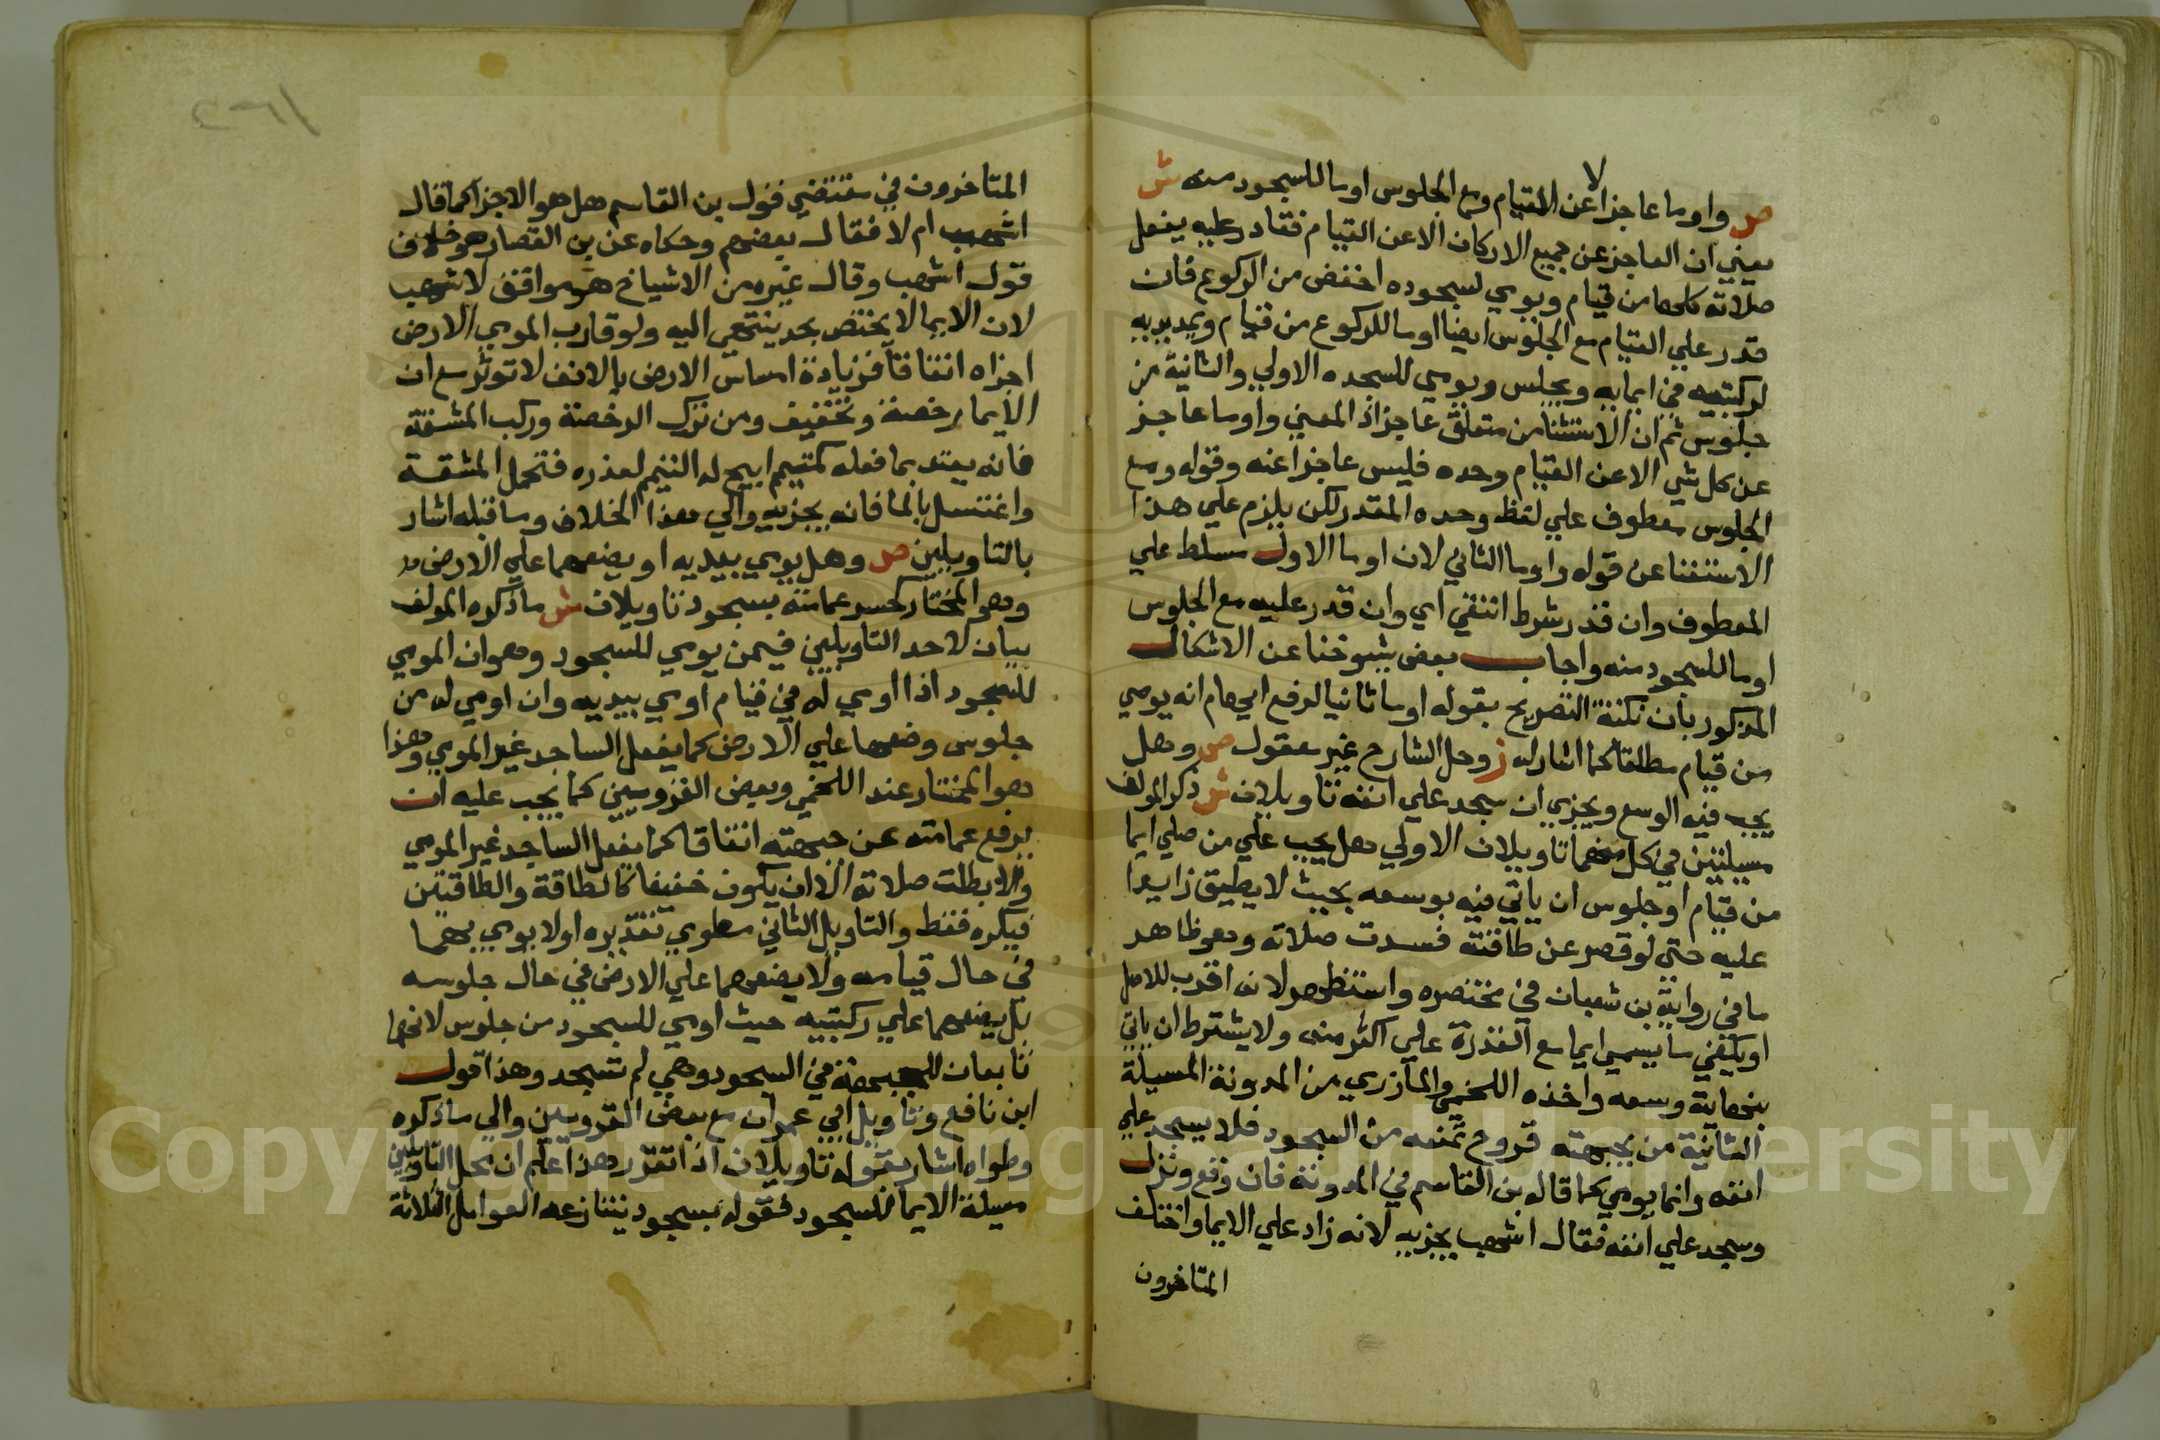 لا
ص واوما عاجزا عن القيام ومع الجلوس اوما للسجود منه ش
يعني ان العاجز عن جميع الاركان الا عن القيام فقادر عليه يفعل
صلاته كلها من قيام ويومي لسجوده اخفض من الركوع فان
قدر علي القيام مع الجلوس ايضا اوما للركوع من قيام ويمد يديه
لركبتيه في ايمايه ويجلس ويومي للسجده الاولي والثانية من
جلوس ثم ان الاستثنا من متعلق عاجزا اذ المعني واوما عاجز
عن كل شي الا عن القيام وحده فليس عاجزا عنه وقوله ومع
الجلوس معطوف علي لفظ وحده المقدر لكن يلزم علي هذا
الاستغنا عن قوله واوما الثاني لان اوما الاول مسلط علي
المعطوف وان قدر شرط انتفي اي وان قدر عليه مع الجلوس
اوما للسجود منه واجاب بعض شيوخنا عن الاشكال
المذكور بان نكتة التصريح بقوله اوما ثانيا لرفع ايهام انه يومي
من قيام مطلقا كما اشار له ز وحل الشارح غير معقول ص وهل
يجب فيه الوسع ويجزي ان سجد علي انفه تاويلان ش ذكر المولف
مسيلتين في كل منهما تاويلان الاولي هل يجب علي من صلي ايما
من قيام او جلوس ان ياتي فيه بوسعه بحيث لا يطيق زايدا
عليه حتي لو قصر عن طاقته فسدت صلاته وهو ظاهر
ما في رواية بن شعبان في مختصره واستظهر لانه اقرب للاصل
او يكفي ما يسمي ايما مع القدرة علي اكثر منه ولا يشترط ان ياتي
بنهاية وسعه واخذه اللخمي والمازري من المدونة المسيلة
الثانية من بجبهته قروح تمنعه من السجود فلا يسجد علي
انفه وانما يومي كما قاله بن القاسم في المدونة فان وقع ونزل
وسجد علي انفه فقال اشهب يجزيه لانه زاد علي الايما واختلف
المتاخرون
المتاخرون في مقتضي قول بن القاسم هل هو الاجزا كما قال
اشهب ام لا فقال بعضهم وحكاه عن بن القصار هو خلاف
قول اشهب وقال غيره من الاشياخ هو موافق لاشهب
لان الايما لا يختص بحد ينتهي اليه ولو قارب المومي الارض
اجزاه اتفاقا فزيادة امساس الارض بالانف لا توثر مع ان
الايما رخصة وتخفيف ومن ترك الرخصة وركب المشقة
فانه يعتد بما فعله كمتيمم ابيح له التيمم لعذره فتحمل المشقة
واغتسل بالما فانه يجزيه والي هذا الخلاف وما قبله اشار
بالتاويلين ص وهل يومي بيديه او يضعهما علي الارض
وهو المختار كحسر عمامته بسجود تاويلان ش ما ذكره المولف
بيان لاحد التاويلين فيمن يومي للسجود وهو ان المومي
للسجود اذا اومي له في قيام اومي بيديه وان اومي له من
جلوس وضعها علي الارض كما يفعل الساجد غير المومي وهذا
هو المختار عند اللخمي وبعض القرويين كما يجب عليه ان
يرفع عمامته عن جبهته اتفاقا كما يفعل الساجد غير المومي
والا بطلت صلاته الا ان يكون خفيفا كالطاقة والطاقتين
فيكره فقط والتاويل الثاني مطوي تقديره او لا يومي بهما
في حال قيامه ولا يضعهما علي الارض في حال جلوسه
بل يضعهما علي ركبتيه حيث اومي للسجود من جلوس لانهما
تابعان للجبهة في السجود وهي لم تسجد وهذا قول
ابن نافع وتاويل ابي عمران مع بعض القرويين والي ما ذكره
وطواه اشار بقوله تاويلان اذا تقرر هذا اعلم ان محل التاويلين
مسيلة الايما للسجود فقوله بسجود يتنازعه العوامل الثلاثة
Copyright © King Saud University